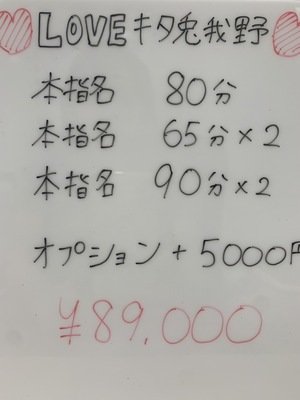 LOVEキタ兎我野
本指名 80分
本指名 65分×2
本指名 90分×2
オプション+5000円
¥89.000